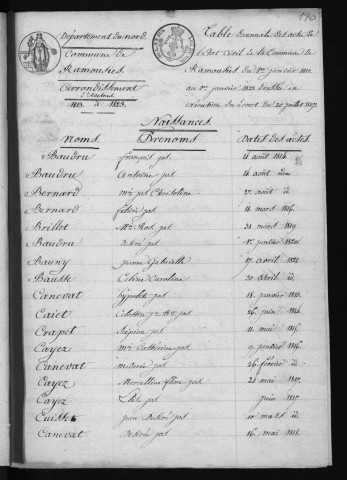 190
Département du nord.
Commune de
Ramousies
arrondissement
d'avesnes
1813 à 1823.
Table décennale des actes de
l'Etat Civil de la Commune de
Ramousies du 1er janvier 1813
au 1er janvier 1823 dressée en
exécution du décret du 20 juillet 1807.
Naissances
Noms. Prenoms Dates des actes.
Baudru françois jph 11 août 1814.
Baudru Antoine jph 16 août
Bernard Mie jph Christoline 27 août id
Bernard jph 11 mars 1816.
Brillet jph 31 mars 1819
Baudru Désiré jph 1er janvier 1820
Bauny jeanne Gabrielle 17 avril 1822
Baudse Céline Caroline 30 avril id
Canevat hypolite jph 18 janvier 1813.
Caict jph 26 juin 1814
Crapet jph 11 mai 1815
Cayez Mie Catherine jph 9 janvier 1816.
Canevat médard jph 26 février id
Cayez Marcelline flore jph 24 mai 1817.
Cayez jph juin 1817
Cuisset Désiré jph 10 mars id
Canevat Désiré jph 16 mai 1818